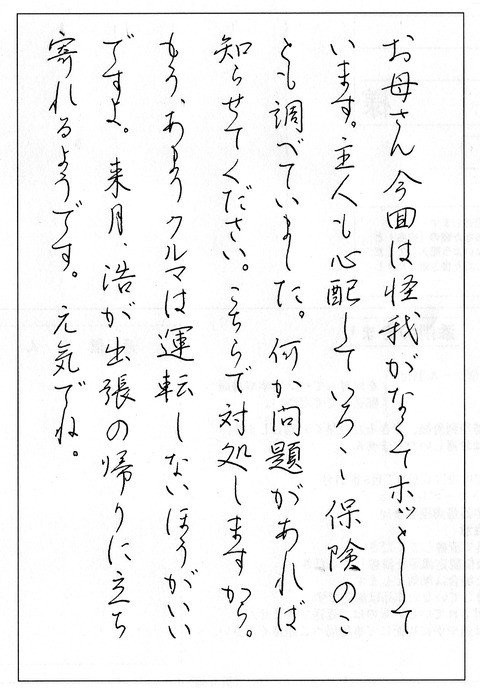 お母さん今回は怪我がなくてホッとして
います。主人も心配していろいろ保険のこ
とも調べていました。何か問題があれば
知らせてください。こちらで対処しますから。
もう、あまりクルマは運転しないほうがいい
ですよ。来月、浩が出張の帰りに立ち
寄れるようです。元気でね。